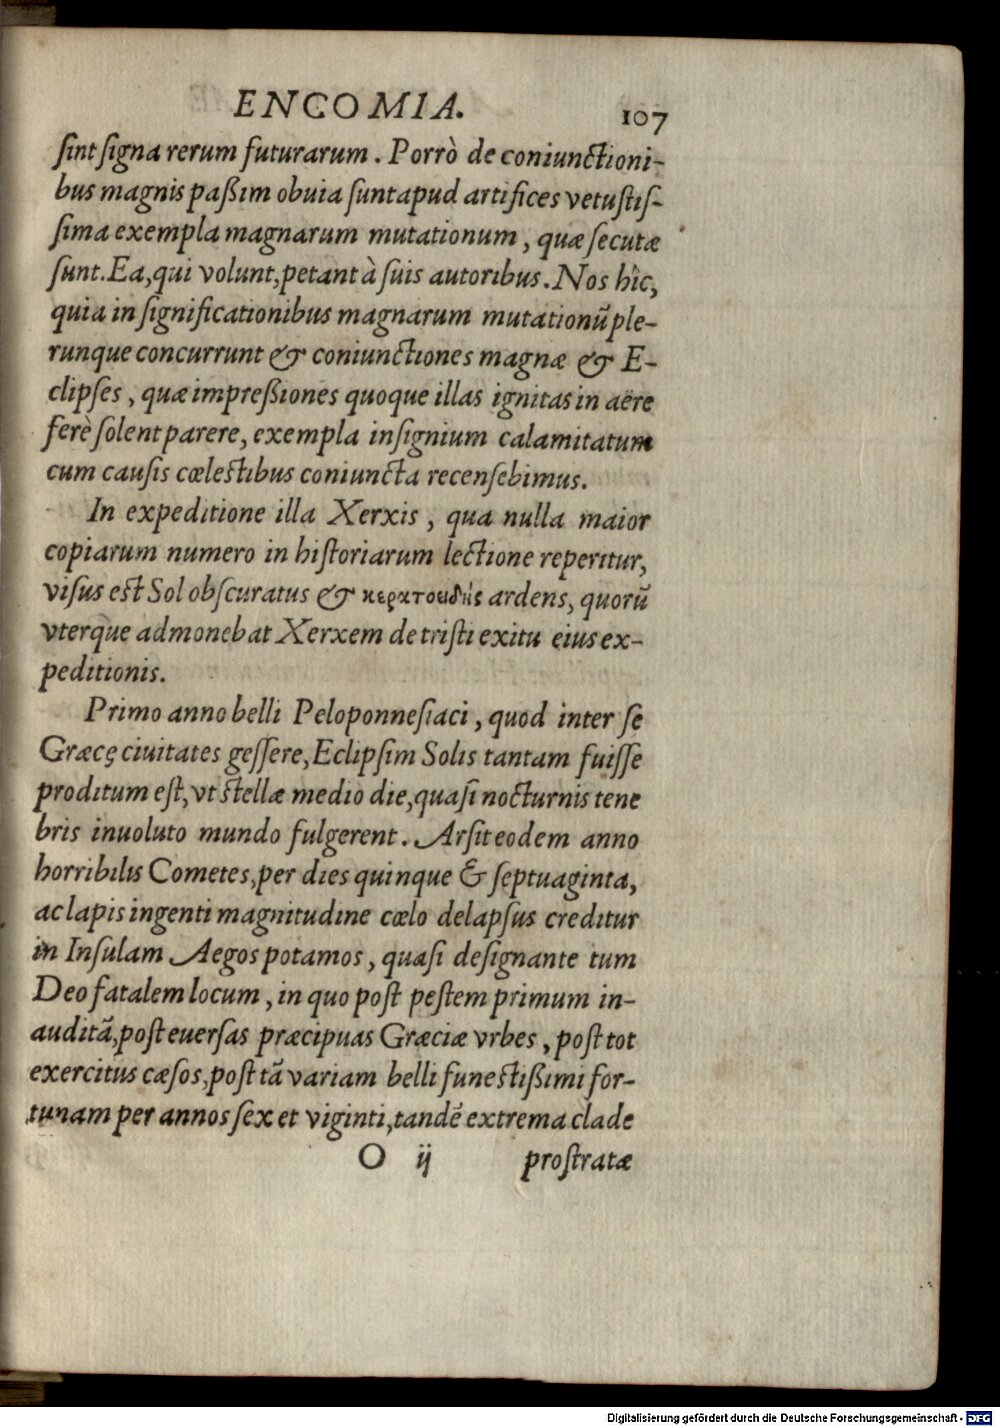 ENCOMIA. 107
ſint ſigna rerum futurarum. Porrò de coniunctioni-
bus magnis paßim obuia ſunt apud artifices vetuſtiſ-
ſima exempla magnarum mutationum, quæ ſecutæ
ſunt. Ea, qui volunt, petant à ſuis autoribus. Nos hîc,
quia in ſignificationibus magnarum mutationũ ple-
runque concurrunt & coniunctiones magnæ & E-
clipſes, quæ impreßiones quoque illas ignitas in aëre
ferè ſolent parere, exempla inſignium calamitatum
cum cauſis cœleſtibus coniuncta recenſebimus.
In expeditione illa Xerxis, qua nulla maior
copiarum numero in hiſtoriarum lectione reperitur,
viſus eſt Sol obſcuratus & κερατοειδὴς ardens, quorũ
vterque admonebat Xerxem de triſti exitu eius ex-
peditionis.
Primo anno belli Peloponneſiaci, quod inter ſe
Græcę ciuitates geſſere, Eclipſim Solis tantam fuiſſe
proditum eſt, vt ſtellæ medio die, quaſi nocturnis tene
bris inuoluto mundo fulgerent. Arſit eodem anno
horribilis Cometes, per dies quinque & ſeptuaginta,
ac lapis ingenti magnitudine cœlo delapſus creditur
in Inſulam Aegos potamos, quaſi deſignante tum
Deo fatalem locum, in quo poſt peſtem primum in-
auditã, poſt euerſas præcipuas Græciæ vrbes, poſt tot
exercitus cæſos, poſt tã variam belli funeſtißimi for-
tunam per annos ſex et viginti, tandẽ extrema clade
O ij proſtratæ
Digitalisierung gefördert durch die Deutsche Forschungsgemeinschaft - DFG